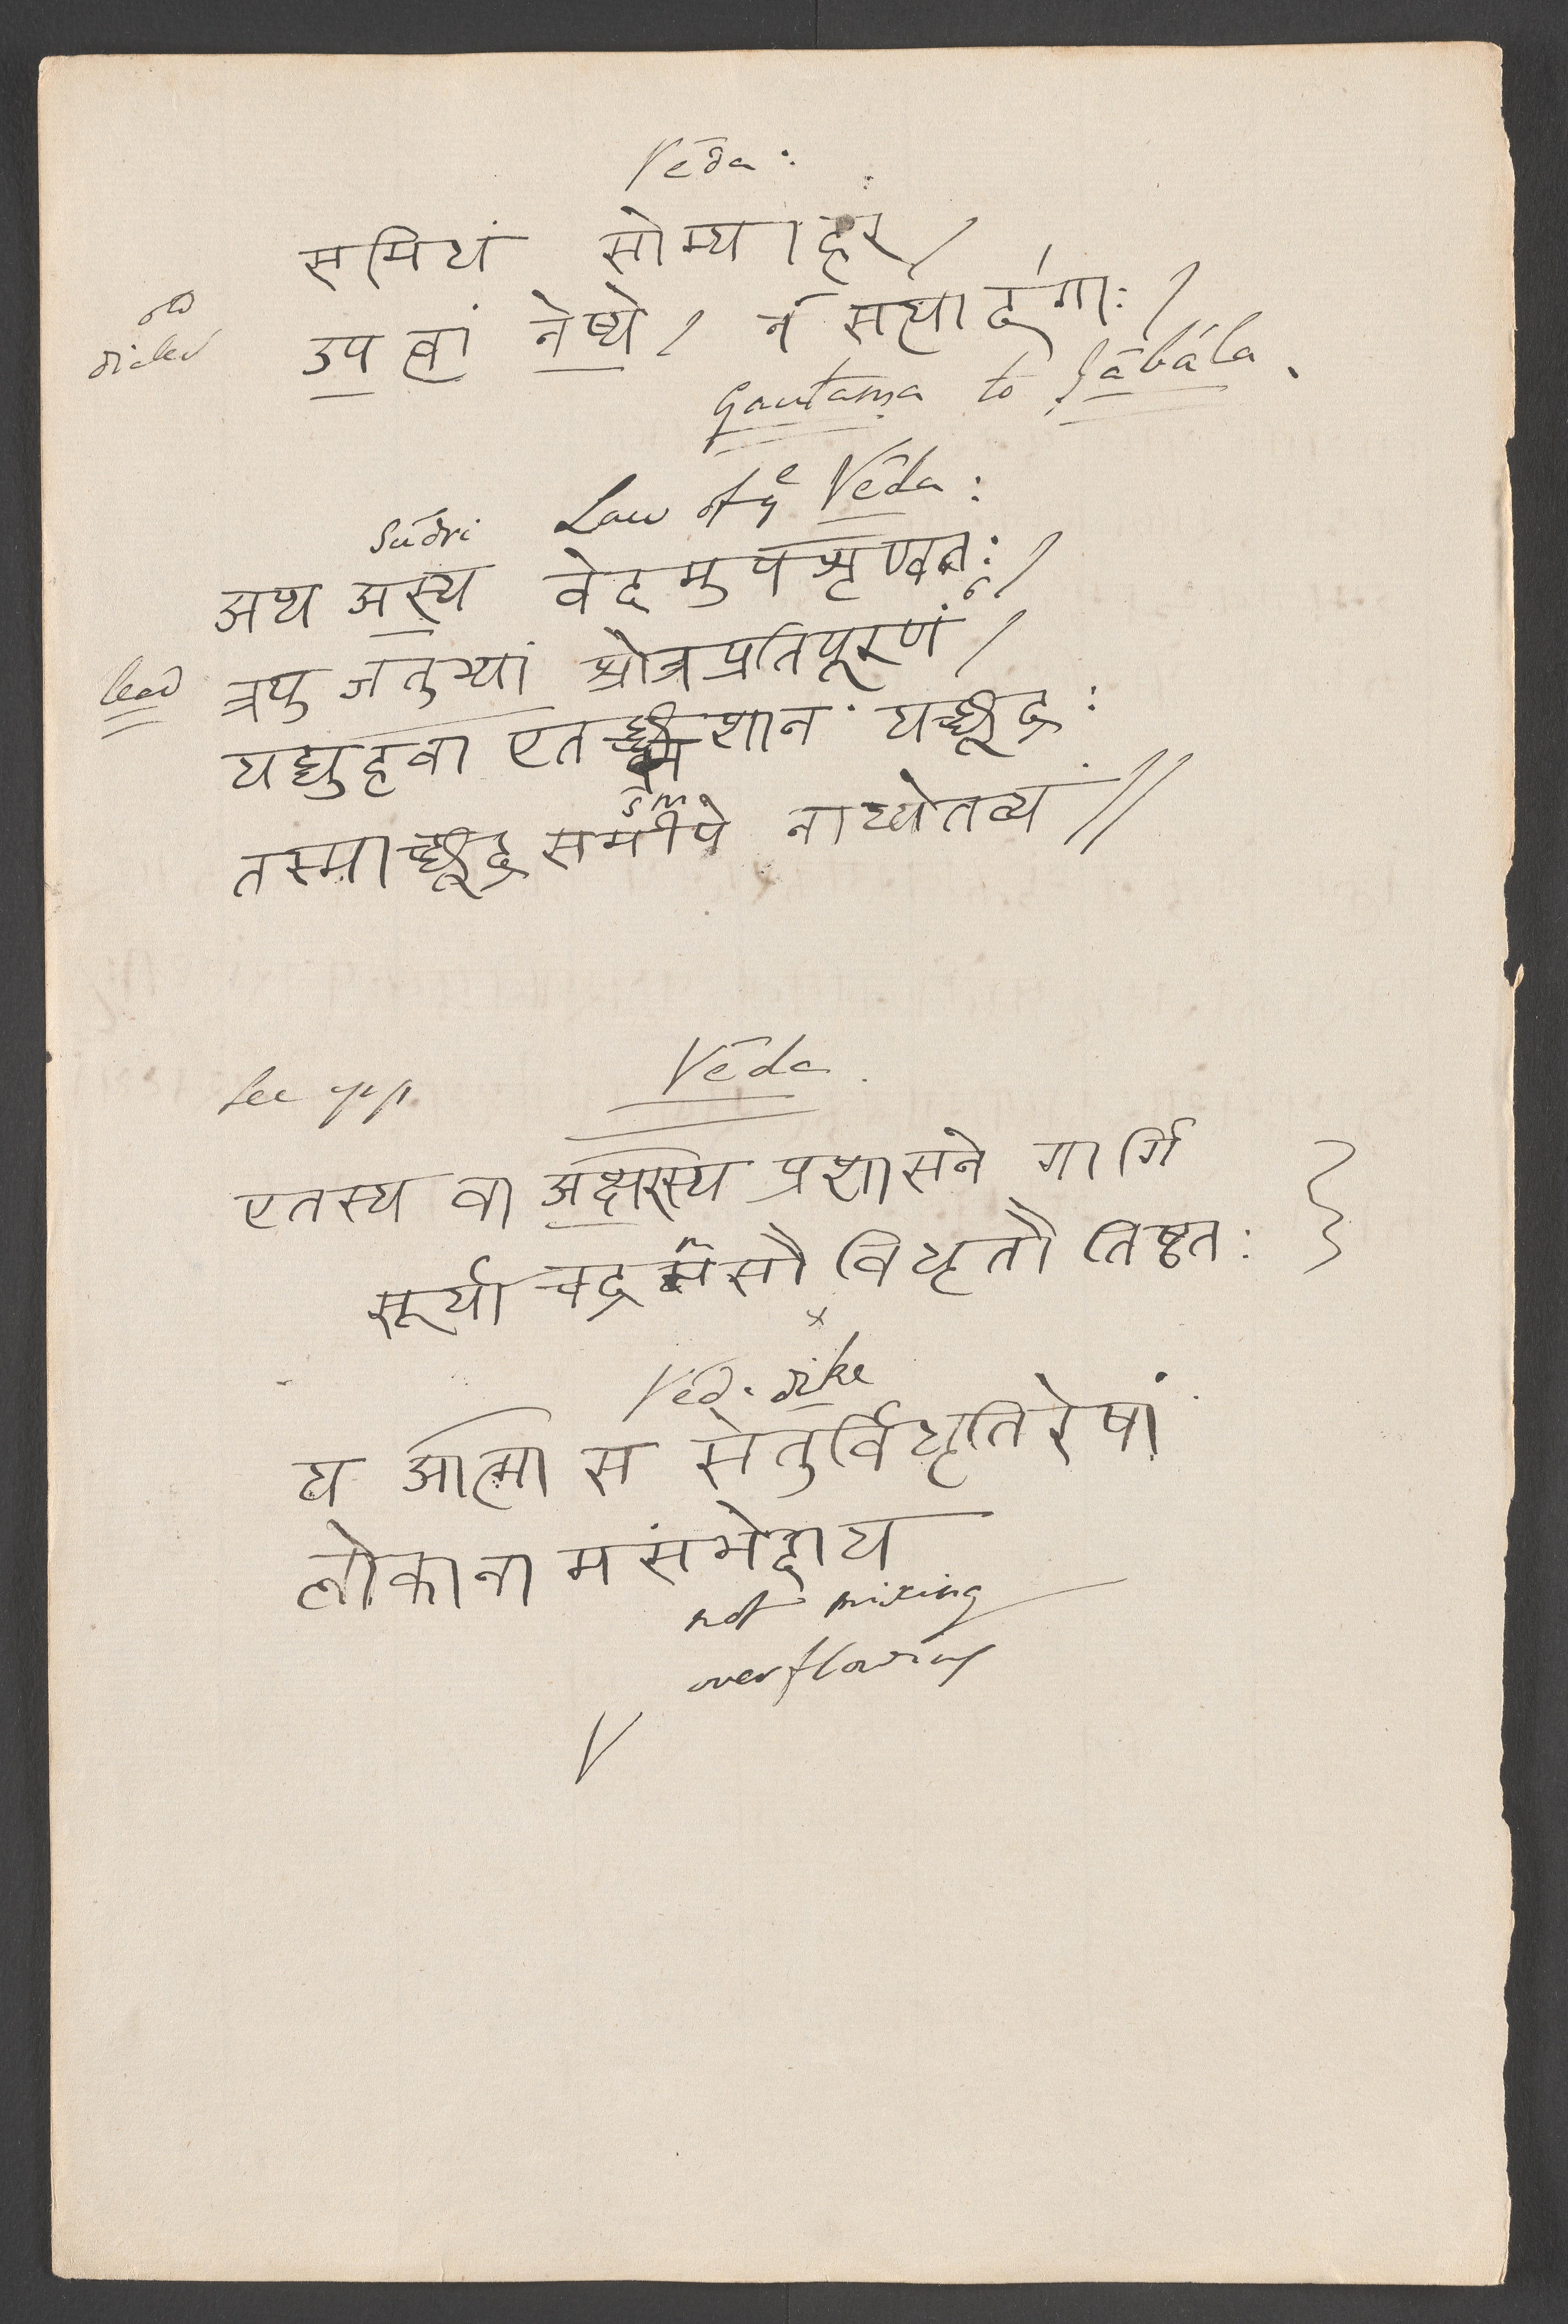 Vēda :
समिधं सोम्याहर /
उप त्वां नेष्ये / न सत्यादगाः /
Gautama to Jābāla .
Law of yᵉ Vēda :
Sūdri
अथ अस्य वेदमुपशृण्वतः /
lead त्रपु जतुभ्यां श्रोत्रप्रतिपूरणं /
यद्युहवा एत शान यच्छूद्र :
sm
तस्माच्छूद्र समीपे नाध्येतव्यं //
Vēda
See
एतस्य वा अक्षरस्य प्रशासने गार्गि
सूर्याचद्रमसौ विधृतौ तिष्ठतः
x
Vēd. dike
य आत्मा स सेतुर्विधृतिरेषां
लोकानामसंभेदाय
not mixing
overflowing